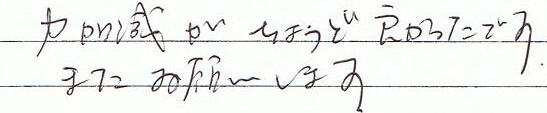 力加減がちょうど良かったです
またお願いします